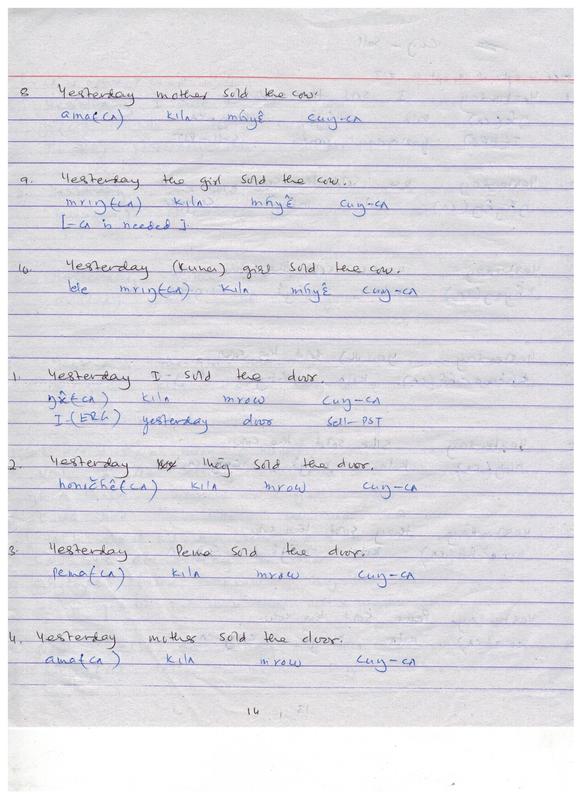 8. Yesterday mother sold the cow.
ama(CA) kilʌ mɦyɛ̂ cuŋ-cʌ
9. Yesterday the girl sold the cow.
mriŋ(CA) kilʌ mɦyɛ̂ cuŋ-cʌ
[-CA is needed].
10. Yesterday (Kunec) girl sold the cow.
mriŋ(CA) kilʌ mɦyɛ̂ cuŋ-cʌ
1. Yesterday I sold the door.
(CA) kilʌ mrow cuŋ-cʌ
I-(ERG) yesterday door sell-PST
2. Yesterday they sold the door.
(CA) kilʌ mrow cuŋ-cʌ
3. Yesterday Pema sold the door.
pema(CA) kilʌ mrow cuŋ-cʌ
4. Yesterday mother sold the door.
ama(CA) kilʌ mrow cuŋ-cʌ
14